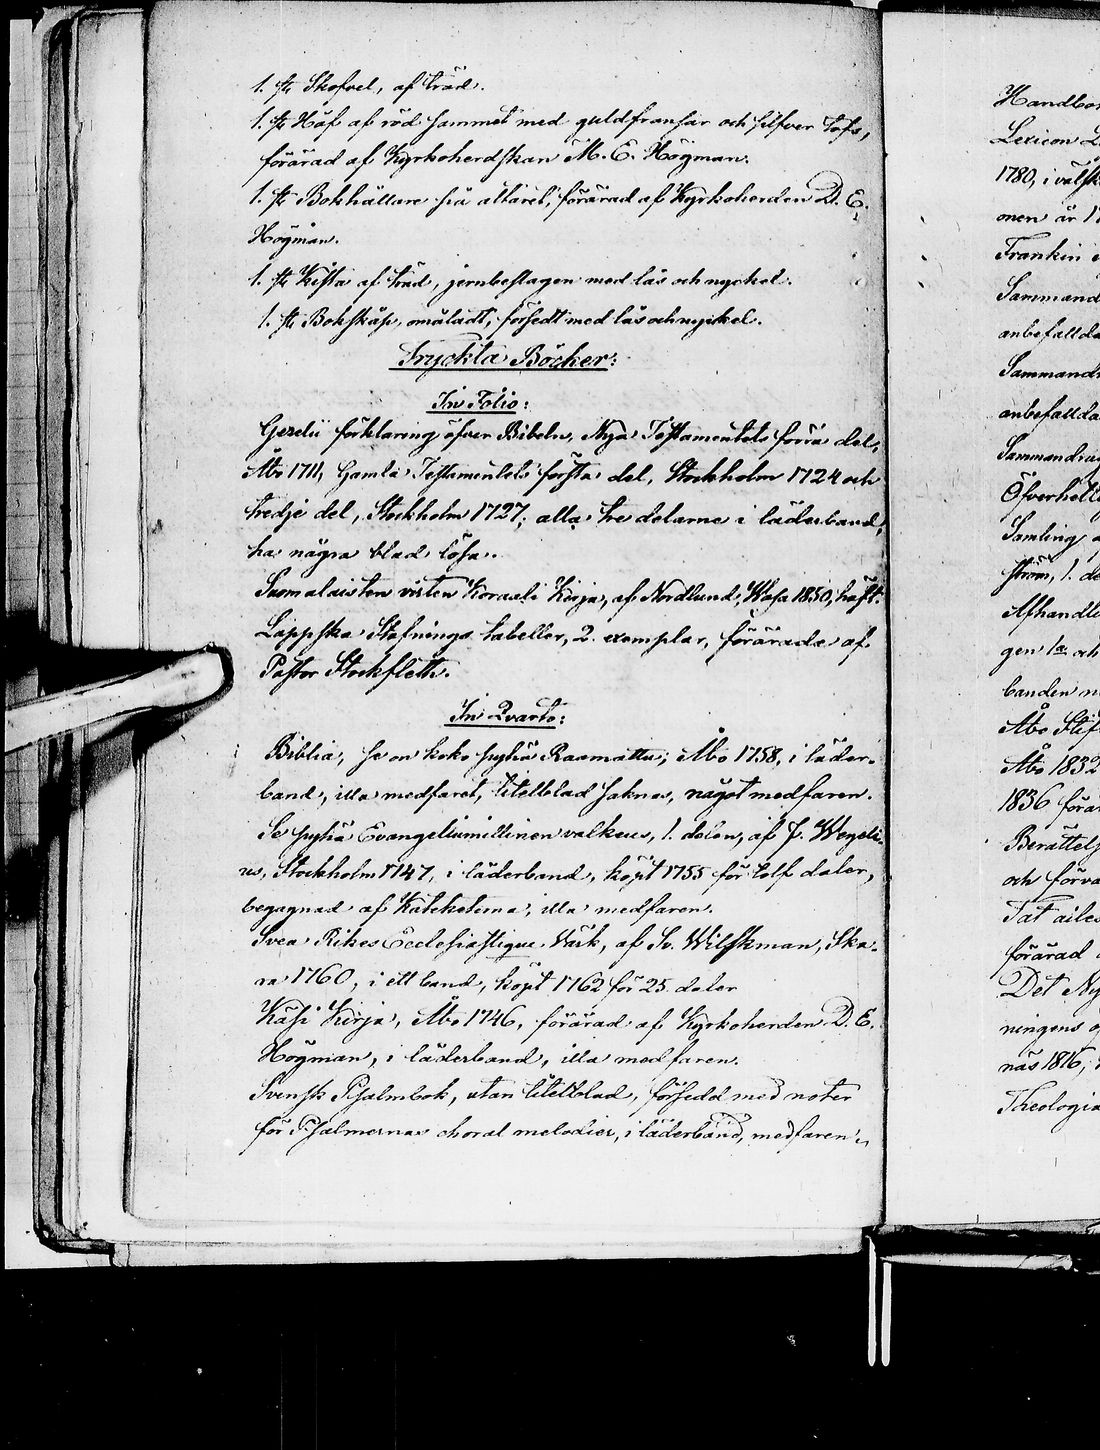 1. st. Skofvel, af träd.
1. st. Håf af röd sammet med guldfransar och silfver tofs,
förärad af Kyrkoherdskan M. E. Högman.
1. st. Bokhållare på altaret, förärad af Kyrkoherden D. E.
Högman.
1. st. Kista af träd, jernbeslagen med lås och nyckel.
1. st. Bokskåp, omåladt, försedt med lås och nyckel.
Tryckta Böcker:
In Folio:
Gezelii förklaring öfver Bibeln, Nya Testamentets förra del,
Åbo 1711, Gamla Testamentets första del, Stockholm 1724 och
tredje del, Stockholm 1727; alla tre delarne i läderband,
ha några blad lösa.
Suomalaisten virten Koraali Kirja, af Nordlund, Wasa 1850, häft.
Lappska Stafnings tabeller, 2. exemplar, förärade af
Pastor Stockfleth.
In Qvarto:
Biblia, se on koko pyhä Raamattu, Åbo 1758, i läder-
band, illa medfaret, titelblad saknas, något medfaren.
Se pyhä Evangeliumillinen valkeus, 1. delen, af J. Wegeli-
us, Stockholm 1747, i läderband, köpt 1755 för tolf daler,
begagnad af Kateketerna, illa medfaren.
Svea Rikes Ecclesiastique Värk, af Sv. Wilskman, Ska-
ra 1760, i ett band, köpt 1762 för 25 daler
Käsi Kirja, Åbo 1746, förärad af Kyrkoherden D. E.
Högman, i läderband, illa medfaren.
Svensk Psalmbok, utan titelblad, försedd med noter
för Psalmernas choral melodier, i läderband, medfaren.
Lexicon
1780, i
onen är
Frankin
Sammand
anbefallda
Sammand
anbefallda
Sammandrag
Samling
ström, 1. de
Afhandli
gen 1a och
banden
Åbo Stif
Åbo 1832
1836 förär
Berättels
och förva
förärad
Det Ny
ningens
näs 1816,
Theologia